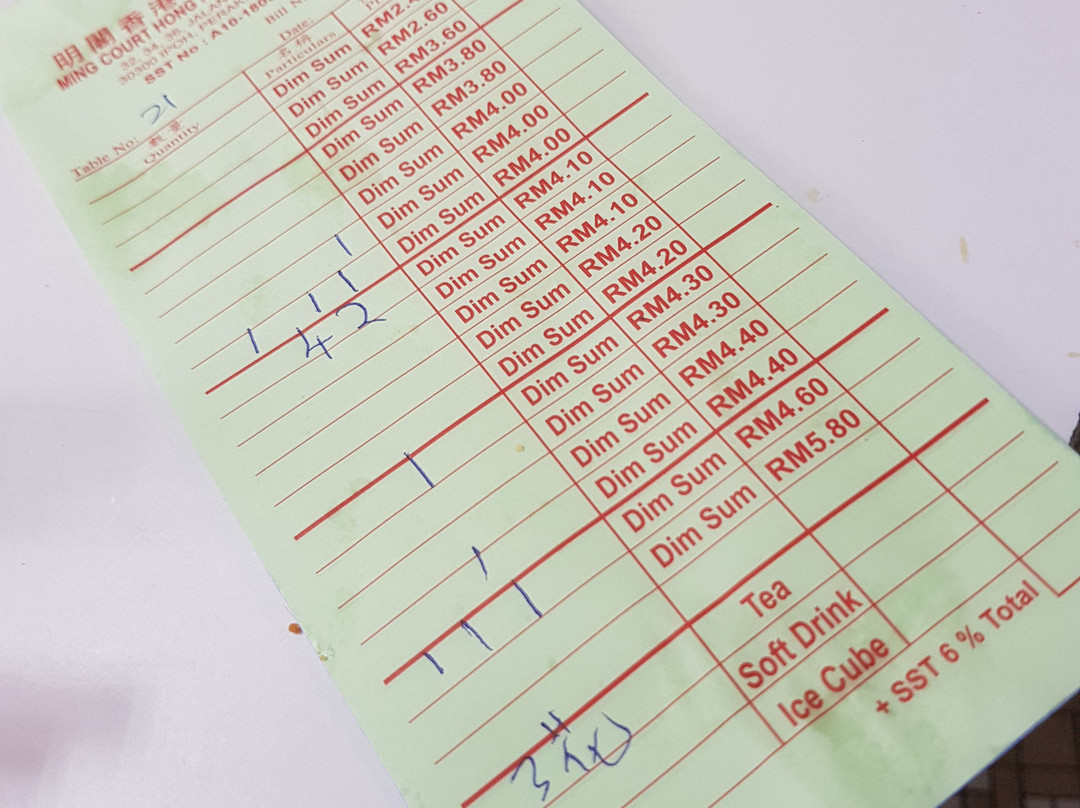 明閣香港
MING COURT HONG
32, 34, 36, JALAN
30300 IPOH, PERAK
SST No : A10-180
Bill No
Table No: 21
Date:
數量 名稱
Quantity Particulars
Dim Sum
Dim Sum RM2.60
Dim Sum RM3.60
Dim Sum RM3.80
Dim Sum RM3.80
Dim Sum RM4.00
1 Dim Sum RM4.00
1 1 1 Dim Sum RM4.00
4 2 Dim Sum RM4.10
Dim Sum RM4.10
Dim Sum RM4.10
Dim Sum RM4.20
1 Dim Sum RM4.20
Dim Sum RM4.30
Dim Sum RM4.30
Dim Sum RM4.40
1 Dim Sum RM4.40
1 1 1 Dim Sum RM4.60
Dim Sum RM5.80
3 Tea
Soft Drink
Ice Cube
+ SST 6 % Total